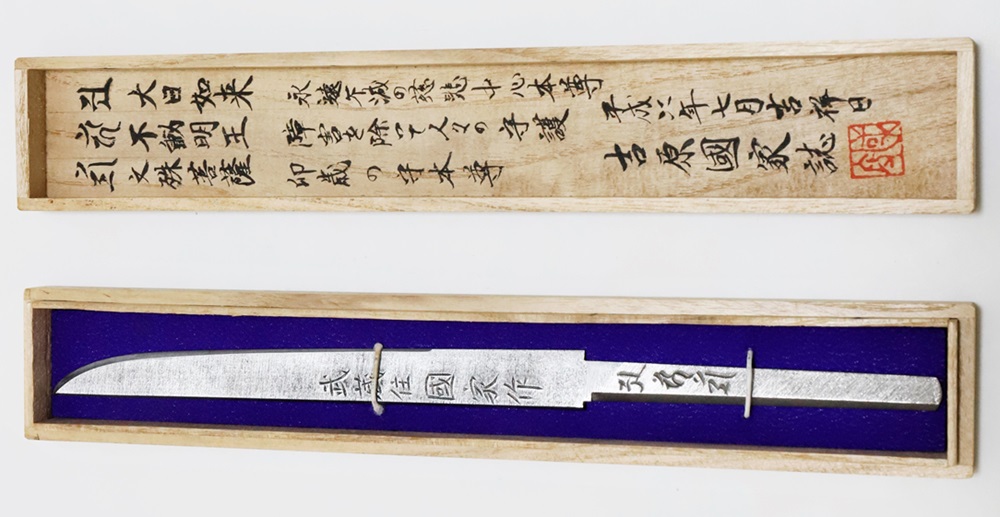 大日如来
不動明王
文殊菩薩
永遠不滅の慈悲十心本尊
障害を除いて人々の守護
卯歳の守本尊
平成八年七月吉祥日
吉原國家誌
武蔵住國家作